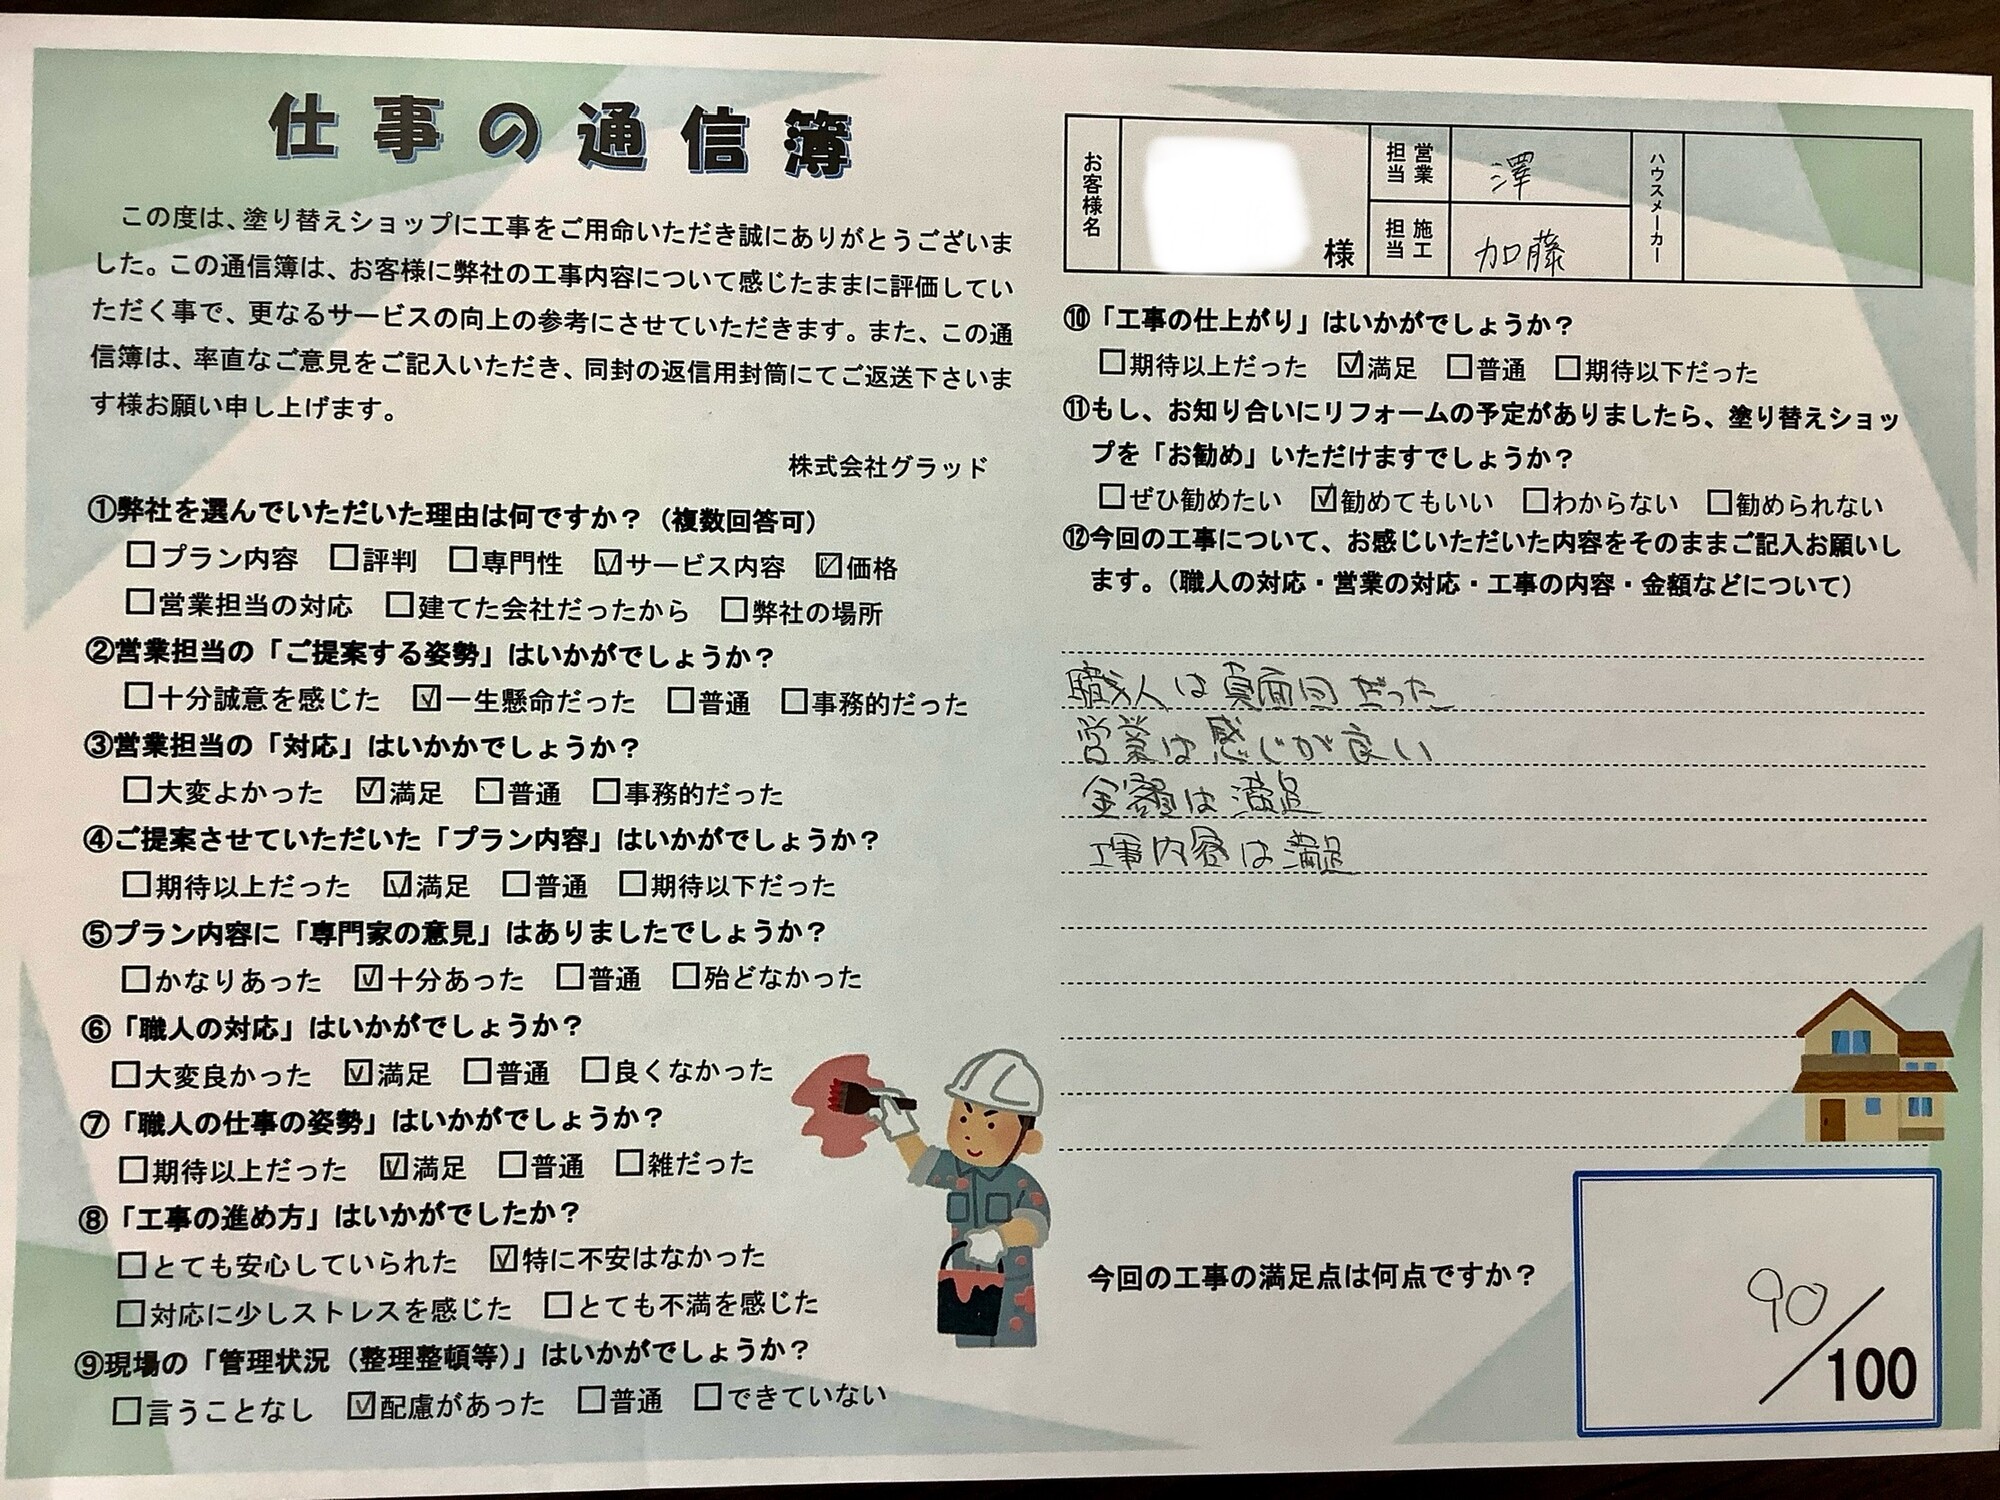 仕事の通信簿
この度は、塗り替えショップに工事をご用命いただき誠にありがとうございま
した。この通信簿は、お客様に弊社の工事内容について感じたままに評価してい
ただく事で、更なるサービスの向上の参考にさせていただきます。また、この通
信簿は、率直なご意見をご記入いただき、同封の返信用封筒にてご返送下さいま
す様お願い申し上げます。
株式会社グラッド
①弊社を選んでいただいた理由は何ですか？（複数回答可）
□プラン内容 □評判 □専門性 ☑サービス内容 ☑価格
□営業担当の対応 □建てた会社だったから □弊社の場所
②営業担当の「ご提案する姿勢」はいかがでしょうか？
□十分誠意を感じた ☑一生懸命だった □普通 □事務的だった
③営業担当の「対応」はいかかでしょうか？
□大変よかった ☑満足 □普通 □事務的だった
④ご提案させていただいた「プラン内容」はいかがでしょうか？
□期待以上だった ☑満足 □普通 □期待以下だった
⑤プラン内容に「専門家の意見」はありましたでしょうか？
□かなりあった ☑十分あった □普通 □殆どなかった
⑥「職人の対応」はいかがでしょうか？
□大変良かった ☑満足 □普通 □良くなかった
⑦「職人の仕事の姿勢」はいかがでしょうか？
□期待以上だった ☑満足 □普通 □雑だった
⑧「工事の進め方」はいかがでしたか？
□とても安心していられた ☑特に不安はなかった
□対応に少しストレスを感じた □とても不満を感じた
⑨現場の「管理状況（整理整頓等）」はいかがでしょうか？
□言うことなし ☑配慮があった □普通 □できていない
お客様名 様 営業担当 澤 ハウスメーカー
施工担当 加藤
⑩「工事の仕上がり」はいかがでしょうか？
□期待以上だった ☑満足 □普通 □期待以下だった
⑪もし、お知り合いにリフォームの予定がありましたら、塗り替えショッ
プを「お勧め」いただけますでしょうか？
□ぜひ勧めたい ☑勧めてもいい □わからない □勧められない
⑫今回の工事について、お感じいただいた内容をそのままご記入お願いし
ます。（職人の対応・営業の対応・工事の内容・金額などについて）
職人は真面目だった
営業は感じが良い
金額は満足
工事内容は満足
今回の工事の満足点は何点ですか？
90/100